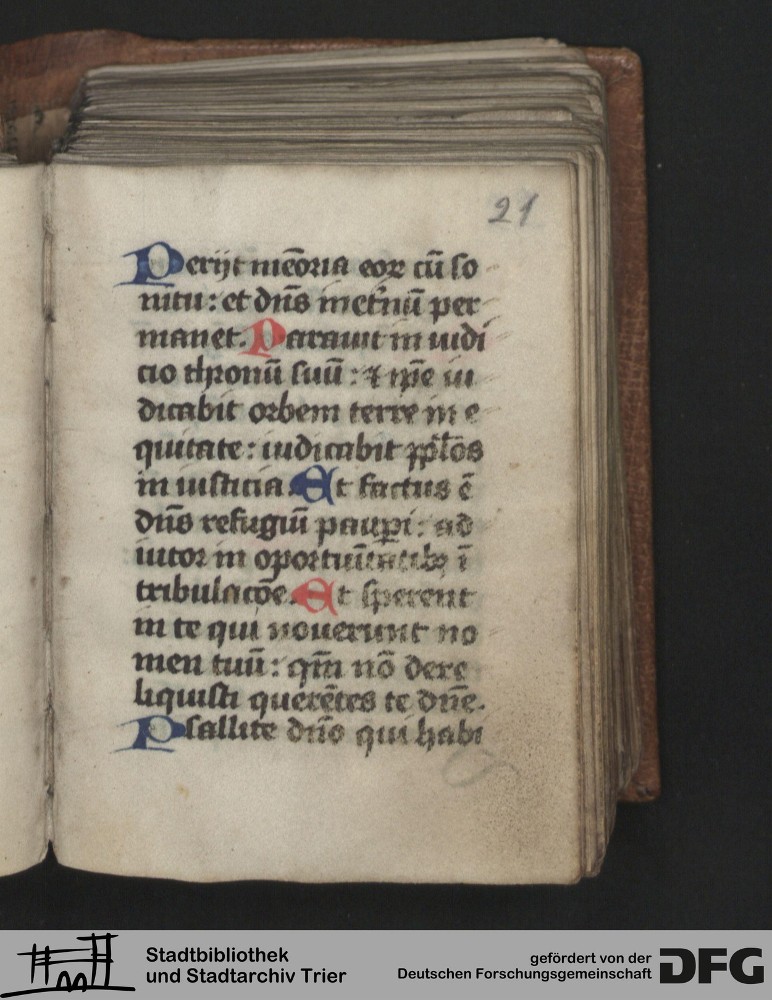 21
Perijt mēoria eoꝝ cū so
nitu : et dn̄s inet̄nū per
manet. Parauit in iudi
cio thronū suū : ⁊ ip̄e iu
dicabit orbem terre in e
quitate : iudicabit pp̄lōs
in iusticia. Et factus ē
dn̄s refugiū paup̱i : ad
iutor in oportuītatibꝫ ī
tribulacōe. Et sperent
in te qui nouerunt no
men tuū : qm̄ nō dere
liquisti querētes te dn̄e.
Psallite dn̄o qui habi
Stadtbibliothek
und Stadtarchiv Trier
gefördert von der
Deutschen Forschungsgemeinschaft
DFG